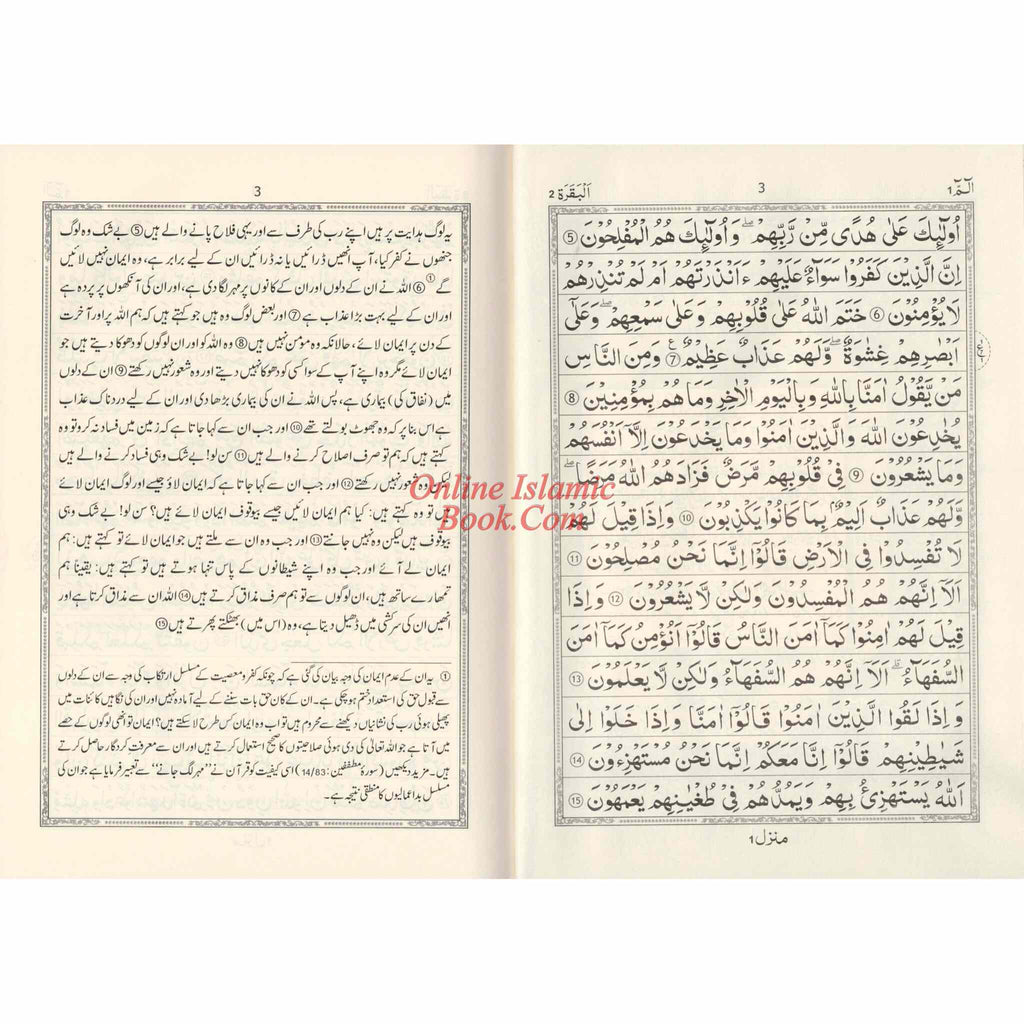 الٓمّٓ 1
3
اَلْبَقَرَة 2
اُولٰٓئِكَ عَلٰى هُدًى مِّنْ رَّبِّهِمْ ۖ وَ اُولٰٓئِكَ هُمُ الْمُفْلِحُوْنَ ⑤
اِنَّ الَّذِيْنَ كَفَرُوْا سَوَآءٌ عَلَيْهِمْ ءَاَنْذَرْتَهُمْ اَمْ لَمْ تُنْذِرْهُمْ
لَا يُؤْمِنُوْنَ ⑥ خَتَمَ اللّٰهُ عَلٰى قُلُوْبِهِمْ وَعَلٰى سَمْعِهِمْ ۖ وَعَلٰٓى
اَبْصَارِهِمْ غِشَاوَةٌ ۖ وَّلَهُمْ عَذَابٌ عَظِيْمٌ ⑦ وَمِنَ النَّاسِ
مَنْ يَّقُوْلُ اٰمَنَّا بِاللّٰهِ وَبِالْيَوْمِ الْاٰخِرِ وَمَا هُمْ بِمُؤْمِنِيْنَ ⑧
يُخٰدِعُوْنَ اللّٰهَ وَالَّذِيْنَ اٰمَنُوْا وَمَا يَخْدَعُوْنَ اِلَّآ اَنْفُسَهُمْ
وَمَا يَشْعُرُوْنَ ⑨ فِيْ قُلُوْبِهِمْ مَّرَضٌ فَزَادَهُمُ اللّٰهُ مَرَضًا ۖ
وَّلَهُمْ عَذَابٌ اَلِيْمٌ بِمَا كَانُوْا يَكْذِبُوْنَ ⑩ وَاِذَا قِيْلَ لَهُمْ
لَا تُفْسِدُوْا فِي الْاَرْضِ قَالُوْٓا اِنَّمَا نَحْنُ مُصْلِحُوْنَ ⑪
اَلَآ اِنَّهُمْ هُمُ الْمُفْسِدُوْنَ وَلٰكِنْ لَّا يَشْعُرُوْنَ ⑫ وَاِذَا
قِيْلَ لَهُمْ اٰمِنُوْا كَمَآ اٰمَنَ النَّاسُ قَالُوْٓا اَنُؤْمِنُ كَمَآ اٰمَنَ
السُّفَهَآءُ ۗ اَلَآ اِنَّهُمْ هُمُ السُّفَهَآءُ وَلٰكِنْ لَّا يَعْلَمُوْنَ ⑬
وَاِذَا لَقُوا الَّذِيْنَ اٰمَنُوْا قَالُوْٓا اٰمَنَّا وَاِذَا خَلَوْا اِلٰى
شَيٰطِيْنِهِمْ قَالُوْٓا اِنَّا مَعَكُمْ اِنَّمَا نَحْنُ مُسْتَهْزِءُوْنَ ⑭
اَللّٰهُ يَسْتَهْزِئُ بِهِمْ وَيَمُدُّهُمْ فِيْ طُغْيَانِهِمْ يَعْمَهُوْنَ ⑮
منزل 1
3
یہ لوگ ہدایت پر ہیں اپنے رب کی طرف سے اور یہی فلاح پانے والے ہیں ⑤ بے شک وہ لوگ
جنھوں نے کفر کیا، آپ انھیں ڈرائیں یا نہ ڈرائیں ان کے لیے برابر ہے، وہ ایمان نہیں لائیں
گے ① ⑥ اللہ نے ان کے دلوں اور ان کے کانوں پر مہر لگا دی ہے، اور ان کی آنکھوں پر پردہ ہے
اور ان کے لیے بہت بڑا عذاب ہے ⑦ اور بعض لوگ وہ ہیں جو کہتے ہیں کہ ہم اللہ پر اور آخرت
کے دن پر ایمان لائے، حالانکہ وہ مومن نہیں ہیں ⑧ وہ اللہ کو اور ان لوگوں کو دھوکا دیتے ہیں جو
ایمان لائے مگر وہ اپنے آپ کے سوا کسی کو دھوکا نہیں دیتے اور وہ شعور نہیں رکھتے ⑨ ان کے دلوں
میں (نفاق کی) بیماری ہے، پس اللہ نے ان کی بیماری بڑھا دی اور ان کے لیے دردناک عذاب
ہے اس بنا پر کہ وہ جھوٹ بولتے تھے ⑩ اور جب ان سے کہا جاتا ہے کہ زمین میں فساد نہ کرو تو وہ
کہتے ہیں کہ ہم تو صرف اصلاح کرنے والے ہیں ⑪ سن لو! بے شک وہی فساد کرنے والے ہیں
لیکن وہ شعور نہیں رکھتے ⑫ اور جب ان سے کہا جاتا ہے کہ ایمان لاؤ جیسے اور لوگ ایمان لائے
ہیں تو وہ کہتے ہیں: کیا ہم ایمان لائیں جیسے بیوقوف ایمان لائے ہیں؟ سن لو! بے شک وہی
بیوقوف ہیں لیکن وہ نہیں جانتے ⑬ اور جب وہ ان سے ملتے ہیں جو ایمان لائے تو کہتے ہیں: ہم
ایمان لے آئے اور جب وہ اپنے شیطانوں کے پاس تنہا ہوتے ہیں تو کہتے ہیں: یقیناً ہم
تمھارے ساتھ ہیں، ان لوگوں سے تو ہم صرف مذاق کرتے ہیں ⑭ اللہ ان سے مذاق کرتا ہے اور
انھیں ان کی سرکشی میں ڈھیل دیتا ہے، وہ (اس میں) بھٹکتے پھرتے ہیں ⑮
① یہ ان کے عدم ایمان کی وجہ بیان کی گئی ہے کہ چونکہ کفر و معصیت کے مسلسل ارتکاب کی وجہ سے ان کے دلوں
سے قبول حق کی استعداد ختم ہو چکی ہے۔ ان کے کان حق بات سننے کے لیے آمادہ نہیں اور ان کی نگاہیں کائنات میں
پھیلی ہوئی رب کی نشانیاں دیکھنے سے محروم ہیں تو اب وہ ایمان کس طرح لا سکتے ہیں؟ ایمان تو انھی لوگوں کے حصے
میں آتا ہے جو اللہ تعالیٰ کی دی ہوئی صلاحیتوں کا صحیح استعمال کرتے ہیں اور ان سے معرفت کردگار حاصل کرتے
ہیں۔ مزید دیکھیں (سورۂ مطففین: 14/83) اسی کیفیت کو قرآن نے ”مہر لگ جانے“ سے تعبیر فرمایا ہے جو ان کی
مسلسل بداعمالیوں کا منطقی نتیجہ ہے۔
Online Islamic
Book.Com